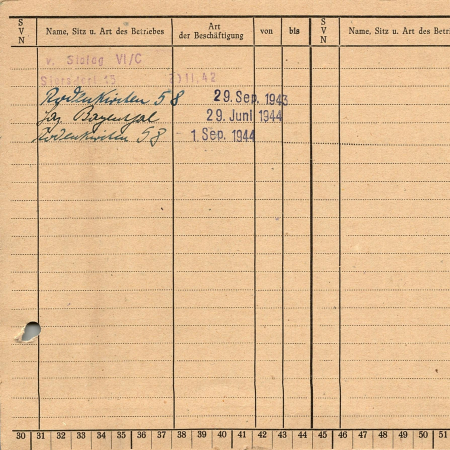 S V N Name, Sitz u. Art des Betriebes Art der Beschäftigung von bis S V N Name, Sitz u. Art des Betri
v. Stalag VI/C
11.42
Rodenkirchen 58 29. Sep. 1943
29. Juni 1944
Rodenkirchen 58 1. Sep. 1944
30 31 32 33 34 35 36 37 38 39 40 41 42 43 44 45 46 47 48 49 50 51